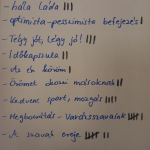 - hála láda |||
- optimista-pesszimista befejezés |
- Tégy jót, légy jó! |||
- Időkapszula ||
- Az én köröm |
- Örömet okozni másoknak ||
- Kedvenc sport, mozgás |||
- Megbocsátás - Varázsszavaink
- A szavak ereje